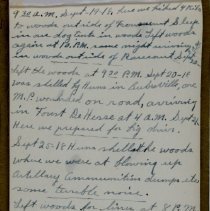 9:30 A.M. Sept 19-18, here we hiked 4 Kilos
to woods outside of Rosecourt. Sleep
in our dog tents in woods. Left woods
again at 8 P.M. same night arriving
in woods outside of Rosecourt Sept
Left the woods at 9:30 P.M. Sept 20-18
was shelled by Huns in
M.P. wounded on road, arriving
in Forst De Hesse at 4 A.M. Sept
Here we prepared for big drive.
Sept 25-18 Huns shelled the woods
where we were at blowing up
Artillery Ammunition dumps, etc
some terrible noise.
Left woods for lines at 8 P.M.